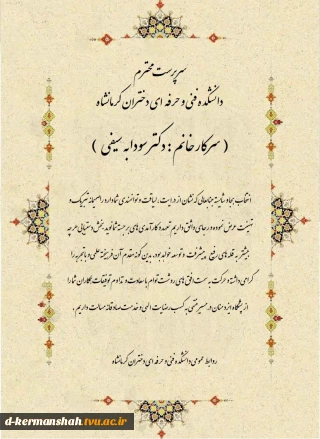 سرپرست محترم
دانشکده فنی و حرفه ای دختران کرمانشاه
( سرکار خانم : دکتر سودابه سیفی )
انتخاب بجا و شایسته جنابعالی که نشان از درایت، لیاقت و توانمندی شما دارد را صمیمانه تبریک و
تهنیت عرض نموده و رجای واثق داریم تعهد و کارآمدی های برجسته شما نوید بخش دستیابی هر چه
بیشتر به قله های رفیع پیشرفت و توسعه خواهد بود. بدین گونه مقدم آن فرهیخته علمی و باتجربه را
گرامی داشته و حرکت به سمت افق های روشنت توأم با سعادت و تداوم توفیقات همکاران شما را
از پیشگاه ایزد منان در مسیر منتهی به کسب رضایت الهی و خدمت صادقانه مسئلت داریم.
روابط عمومی دانشکده فنی و حرفه ای دختران کرمانشاه
d-kermanshah.tvu.ac.ir